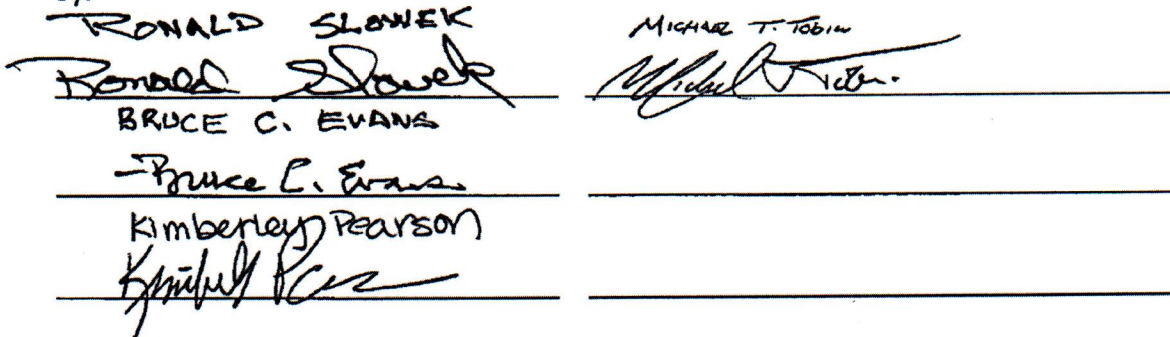 RONALD SLOWEK
Ronald Slowek
BRUCE C. EVANS
Bruce C. Evans
Kimberley Pearson
MICHAEL T. TOBIN
Michael T. Tobin